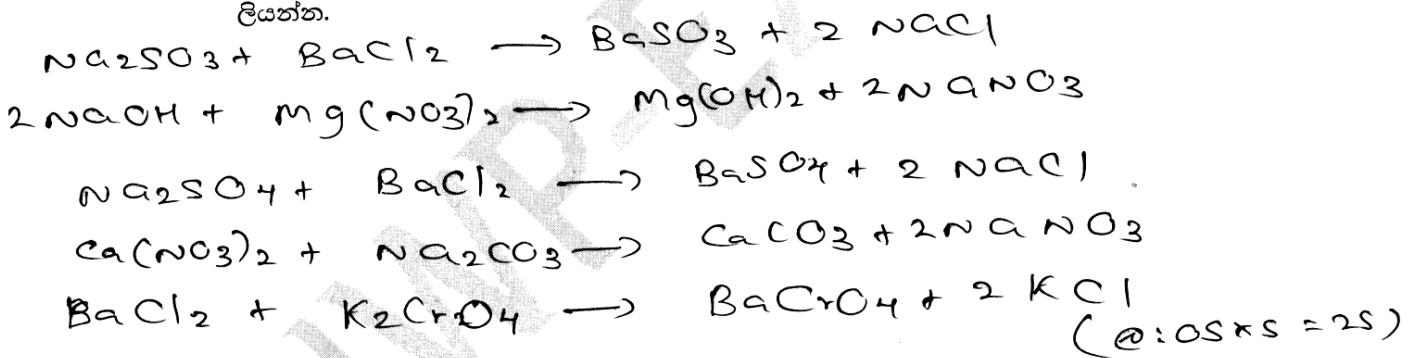 ලියන්න.
Na2SO3 + BaCl2 → BaSO3 + 2 NaCl
2 NaOH + Mg(NO3)2 → Mg(OH)2 + 2NaNO3
Na2SO4 + BaCl2 → BaSO4 + 2 NaCl
Ca(NO3)2 + Na2CO3 → CaCO3 + 2NaNO3
BaCl2 + K2CrO4 → BaCrO4 + 2 KCl
(@: 05 x 5 = 25)